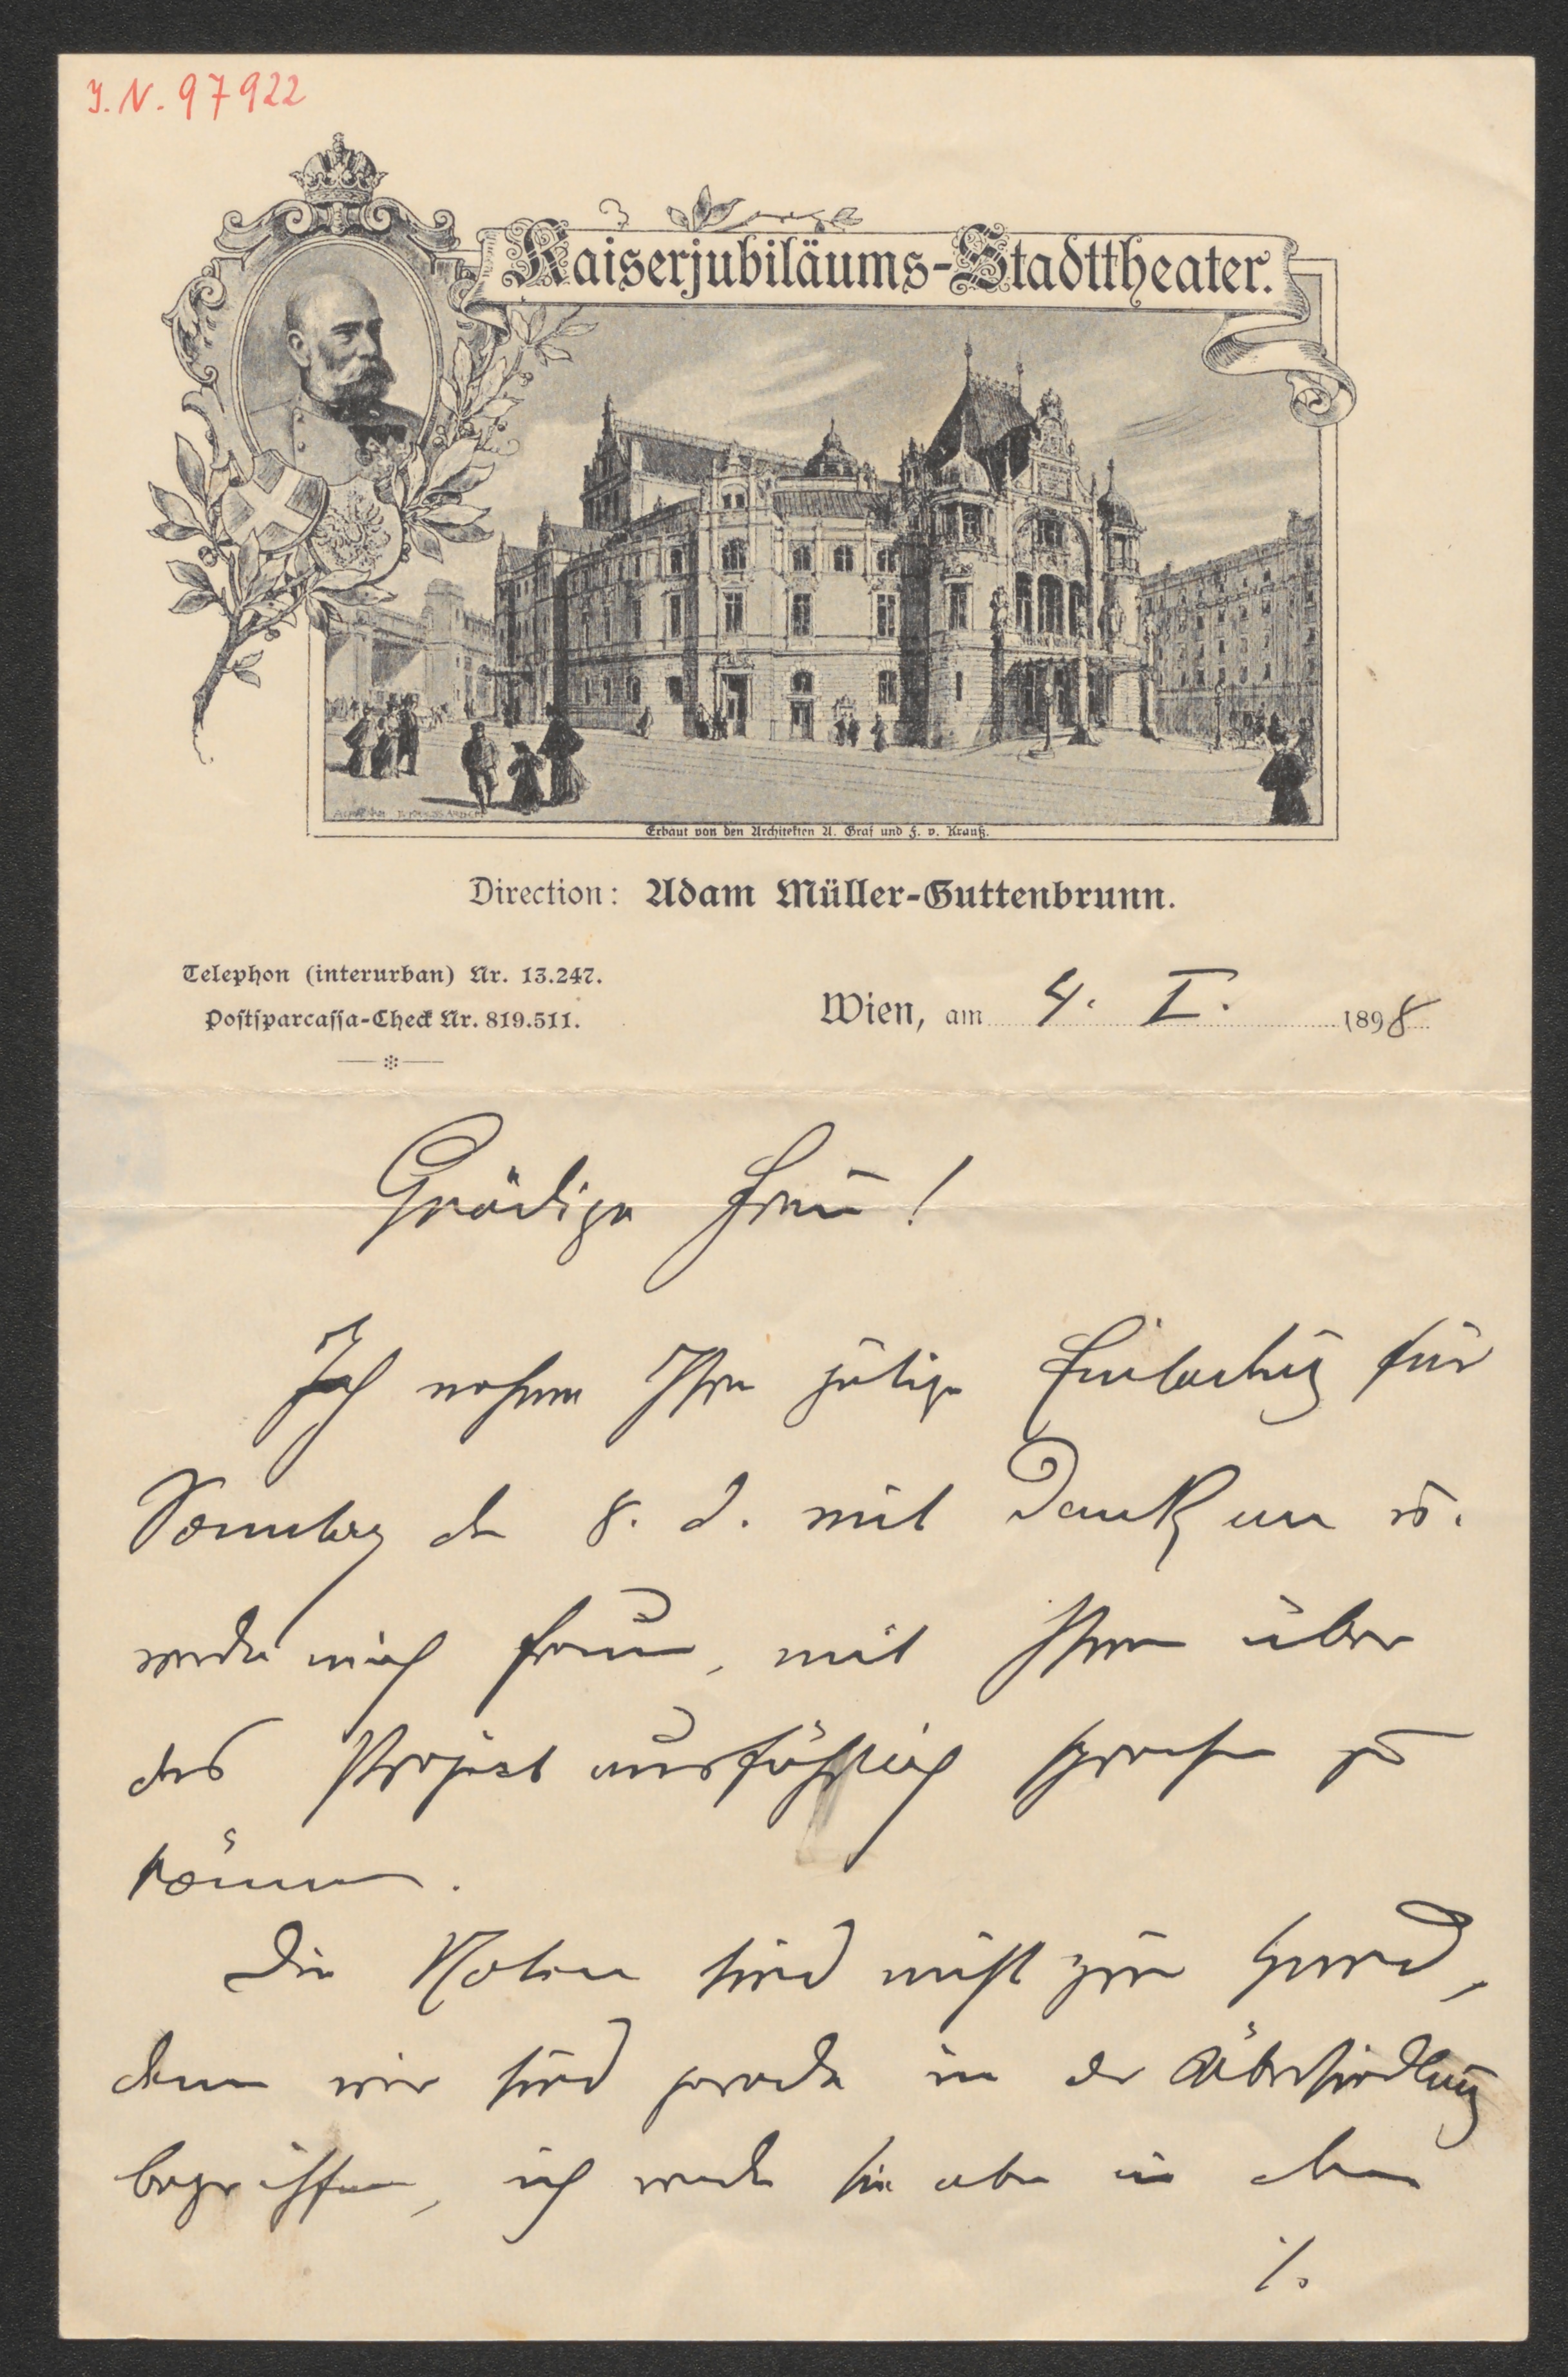 I. N. 97922
Kaiserjubiläums-Stadttheater.
Erbaut von den Architekten A. Graf und F. v. Krauß.
Direction: Adam Müller-Guttenbrunn.
Telephon (interurban) Nr. 13.247.
Postsparcassa-Check Nr. 819.511.
Wien, am 4. I. 1898
Gnädige Frau!
Ich nehme Ihre gütige Einladung für
Sonntag den 8. d. mit Dank an u.
werde mich freuen, mit Ihnen über
das Project ausführlich sprechen zu
können.
Die Noten sind nicht zur Hand,
denn wir sind gerade in der Übersiedlung
begriffen, ich werde sie aber in den
./.